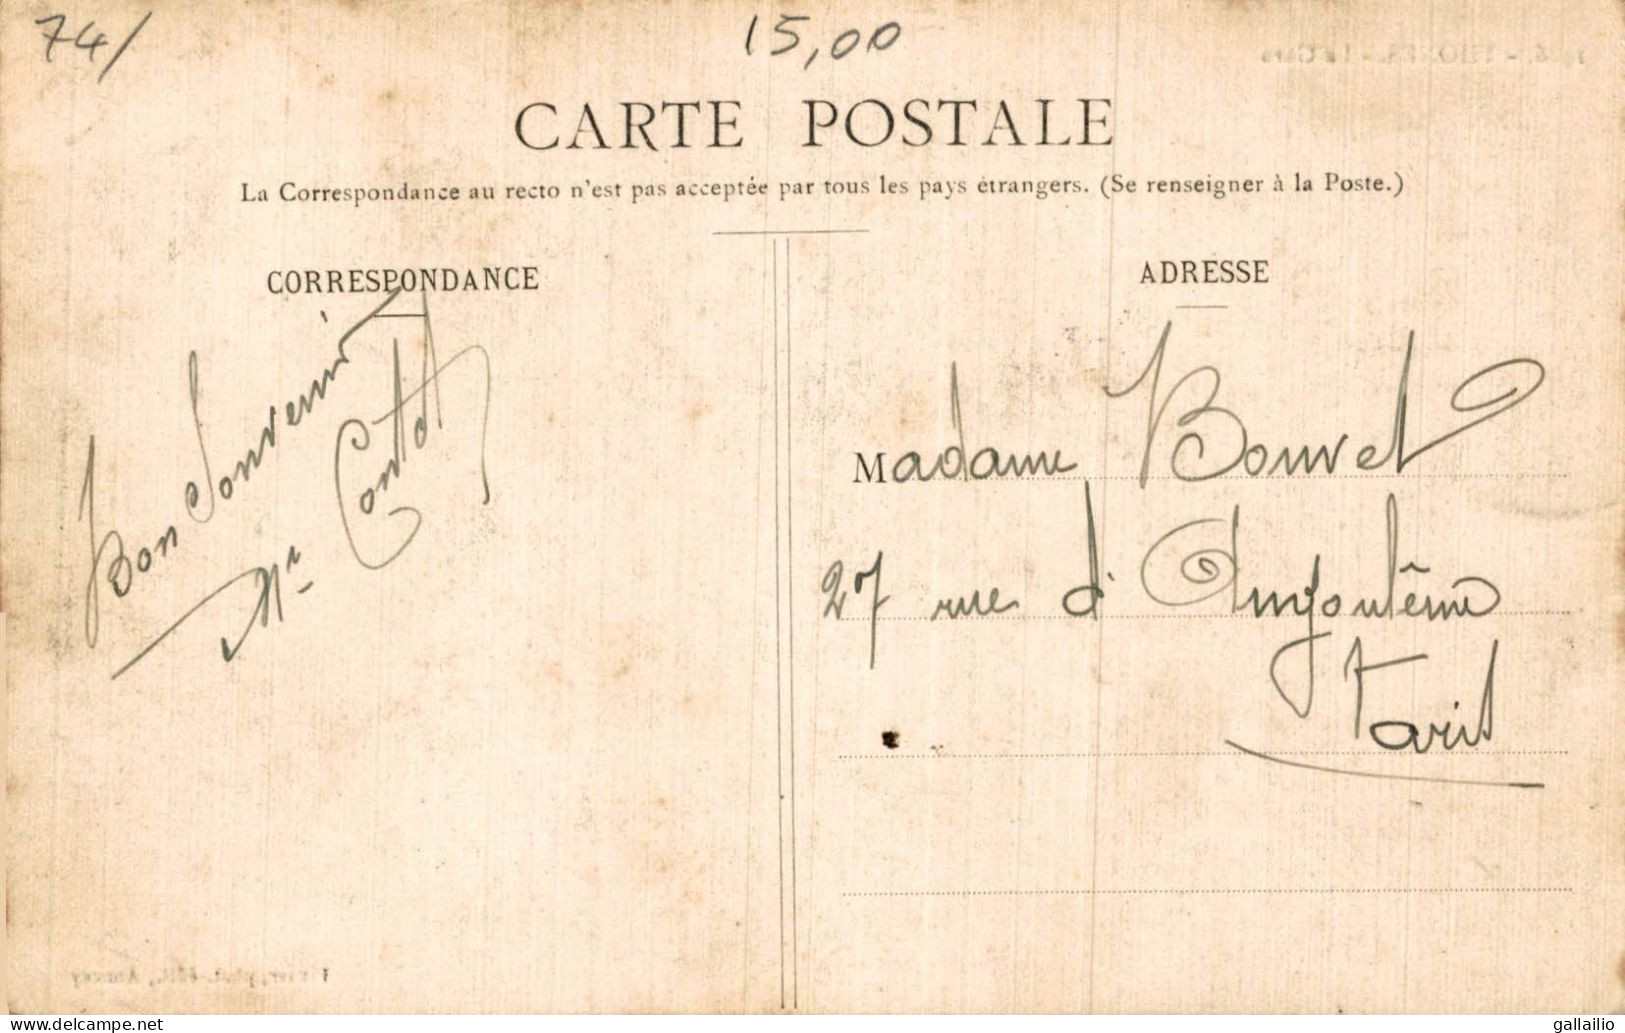 74/
15,00
CARTE POSTALE
La Correspondance au recto n'est pas acceptée par tous les pays étrangers. (Se renseigner à la Poste.)
CORRESPONDANCE
Bon Souvenir
ADRESSE
Madame Bouvet
27 rue d'Angoulême
Paris
www.delcampe.net
gallailio